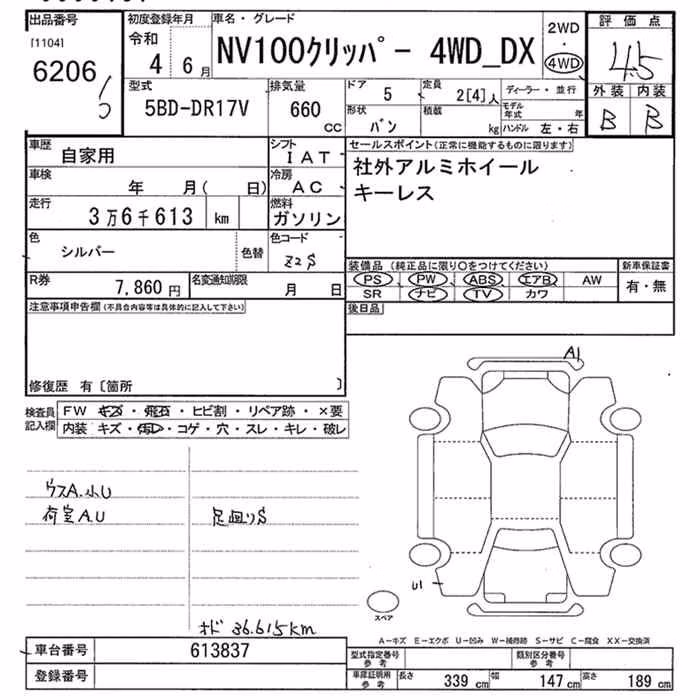 出品番号
[1104]
6206
初度登録年月
令和
4 6月
車名・グレード
NV100クリッパー 4WD_DX
2WD
・
4WD
評価点
4.5
外装 内装
B B
型式
5BD-DR17V
排気量
660
CC
ドア
5
定員
2[4]人
ディーラー・並行
形状
バン
積載
kg
モデル
年式 年
ハンドル 左・右
車歴
自家用
シフト
IAT
セールスポイント(正常に機能するものに限ります)
社外アルミホイール
キーレス
車検
年 月( 日)
冷房
AC
走行
3万6千613 km
燃料
ガソリン
色
シルバー
色替
色コード
Z2S
装備品(純正品に限り○をつけてください)
PS PW ABS エアB AW
SR ナビ TV カワ
新車保証書
有・無
R券
7,860円
名変通知期限
月 日
後日品
注意事項申告欄(不具合内容等は具体的に記入して下さい)
修復歴 有〔箇所 〕
検査員
記入欄
FW キズ・飛石・ヒビ割・リペア跡・×要
内装 キズ・汚レ・コゲ・穴・スレ・キレ・破レ
A1
U1
スペア
ウスA.小U
荷室A.U
足廻りS
オド 36.615km
A−キズ E−エクボ U−凹み W−補修跡 S−サビ C−腐食 XX−交換済
車台番号
613837
登録番号
型式指定番号
参考
類別区分番号
参考
車庫証明用
参考
長さ 339cm 幅 147cm 高さ 189cm